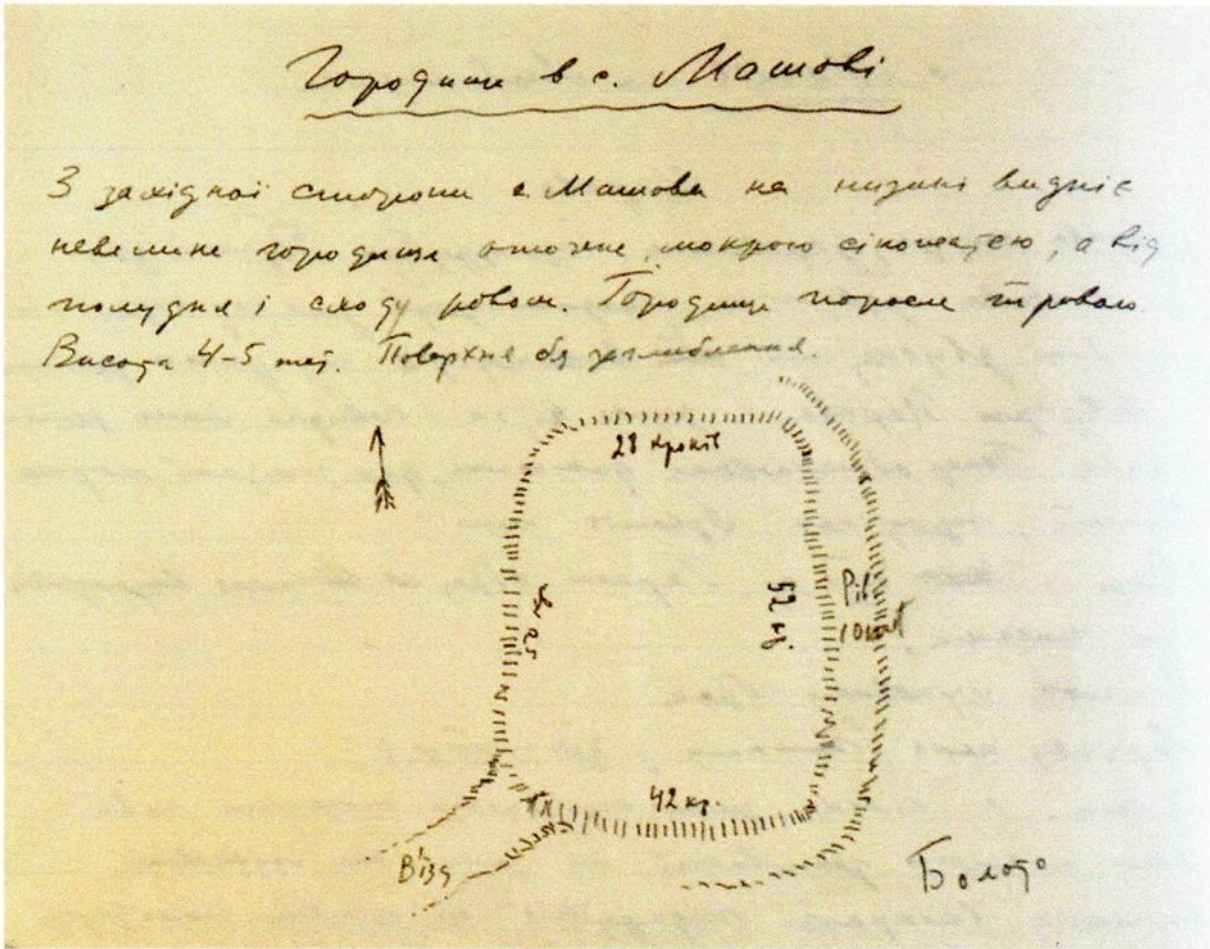 Городище в с. Машові
З західної сторони с. Машова на низині видніє
невелике городище оточене мокрою сіножатею, а від
полудня і сходу ровом. Городище поросле травою.
Висота 4-5 mt. Поверхня без заглиблення.
28 кроків
52 кр.
Рів
42 кр.
В'їзд
Болото